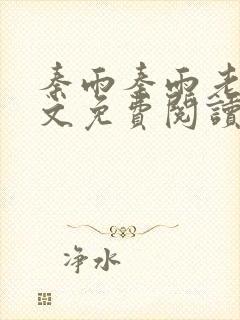 秦雨秦雨老
文免費閱讀
净水